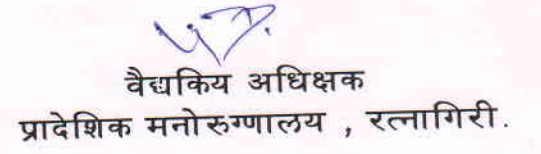 वैद्यकिय अधिक्षक
प्रादेशिक मनोरुग्णालय , रत्नागिरी.